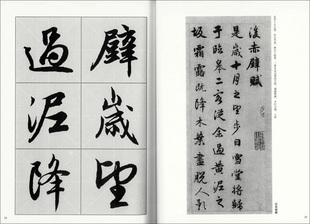 後赤壁賦
是歲十月之望步自雪堂將歸
于臨皋二客從余過黃泥之
坂霜露既降木葉盡脫人影
壁歲望
過泥降